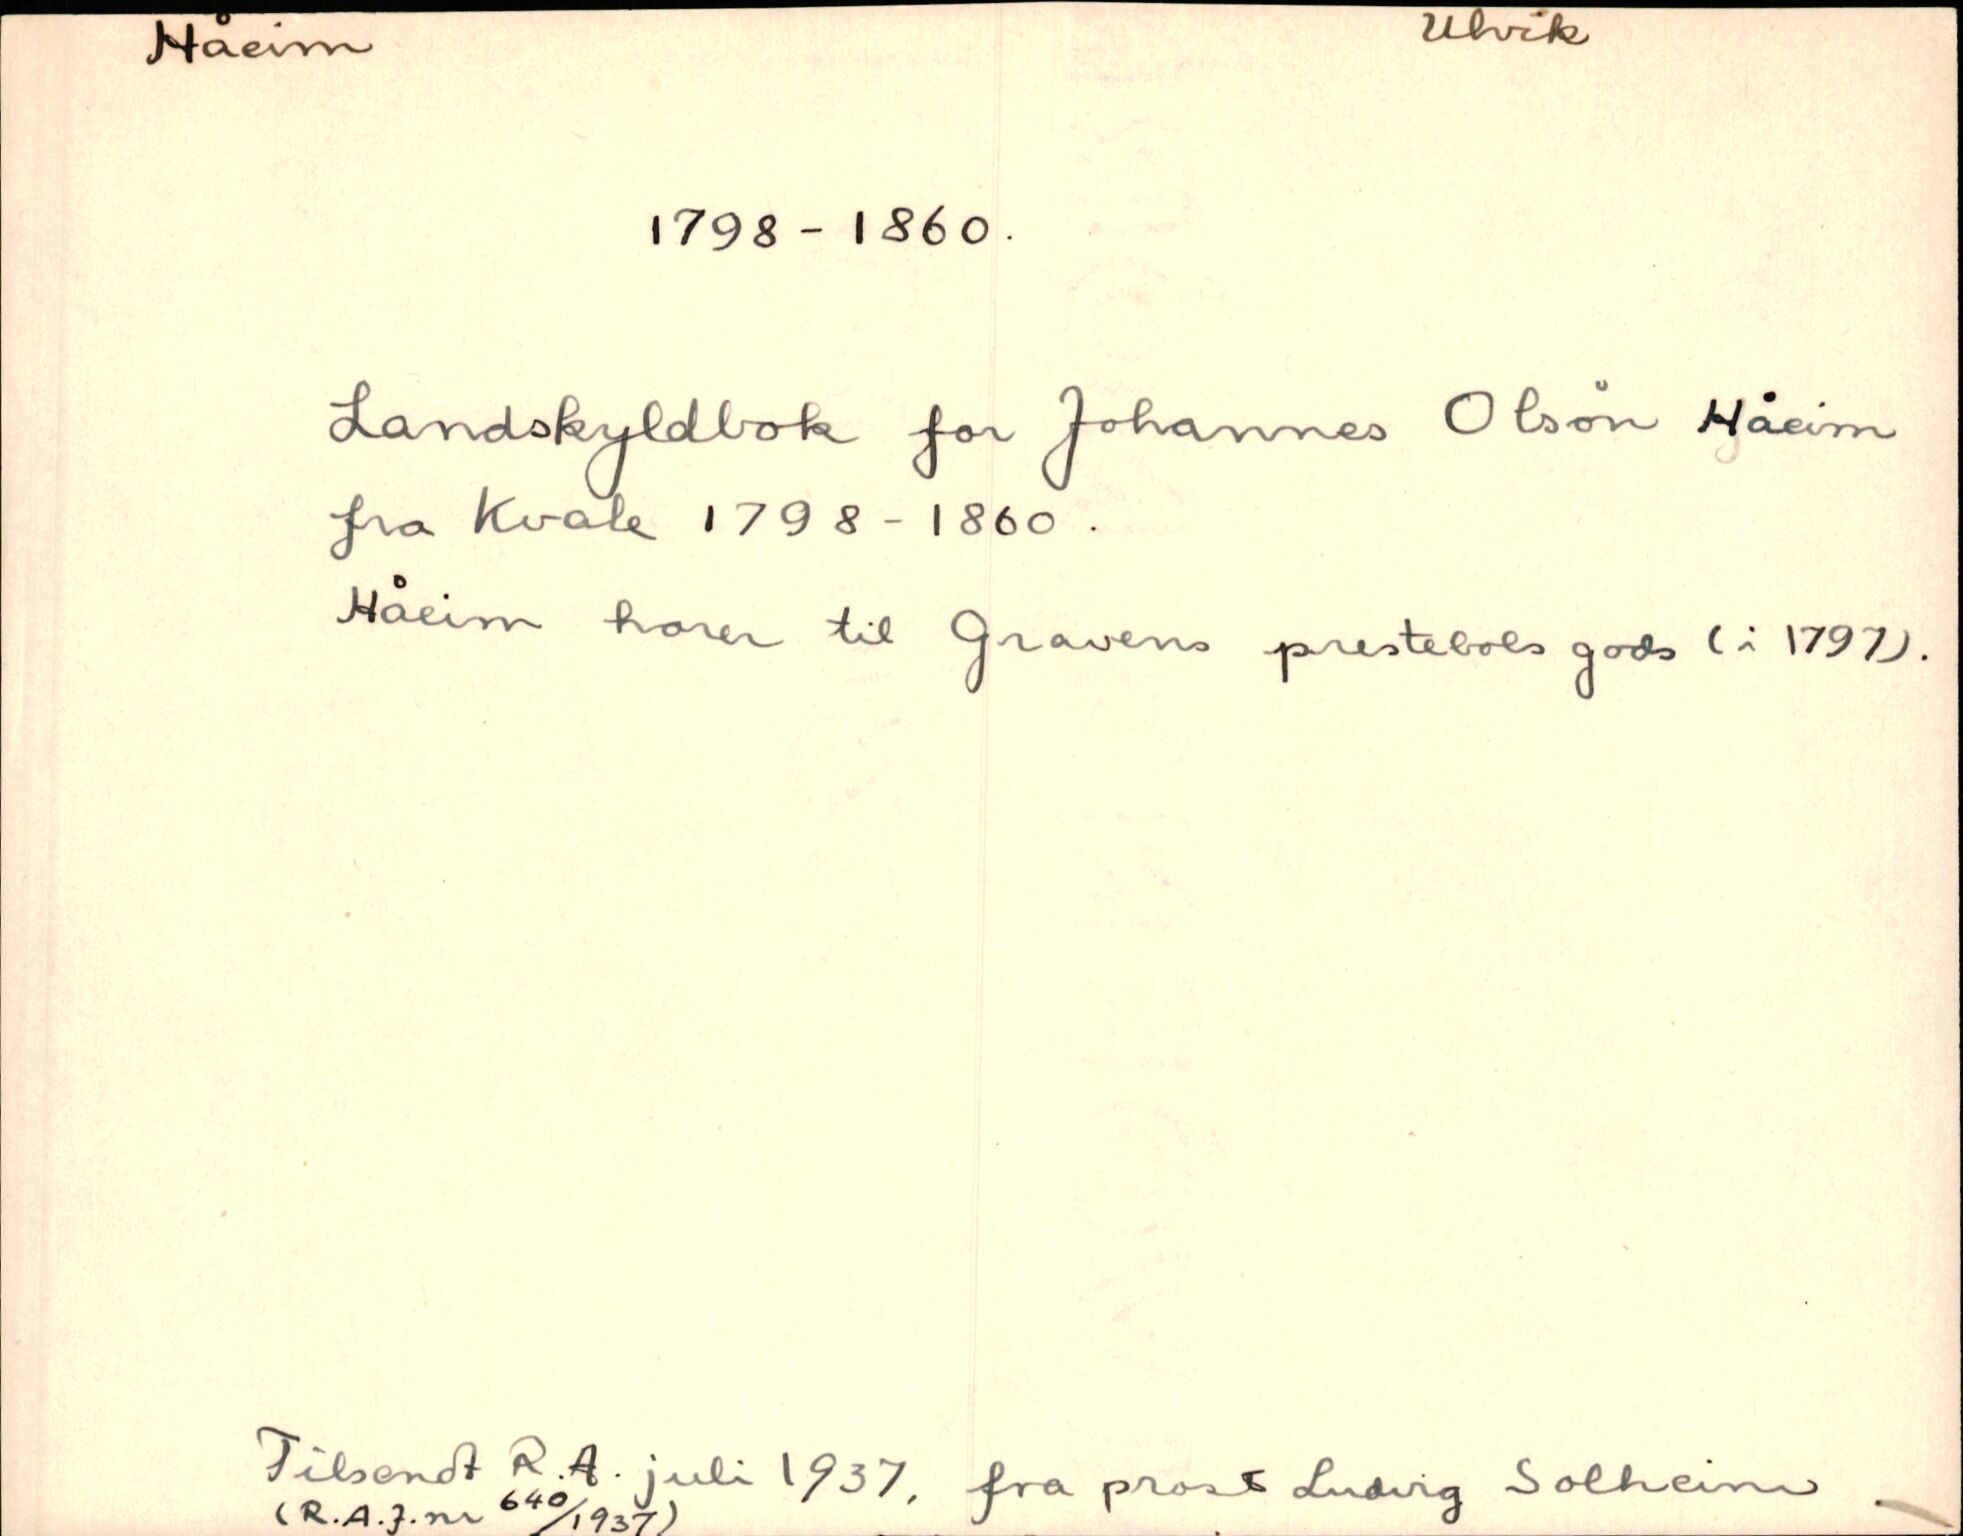 Håeim Ulvik
1798 - 1860.
Landskyldbok for Johannes Olsön Håeim
fra Kvale 1798 - 1860.
Håeim horer til Gravens prestebols gods (i 1797).
Tilsendt R.A. juli 1937, fra prost Ludvig Solheim
(R.A.J.nr 640/1937)